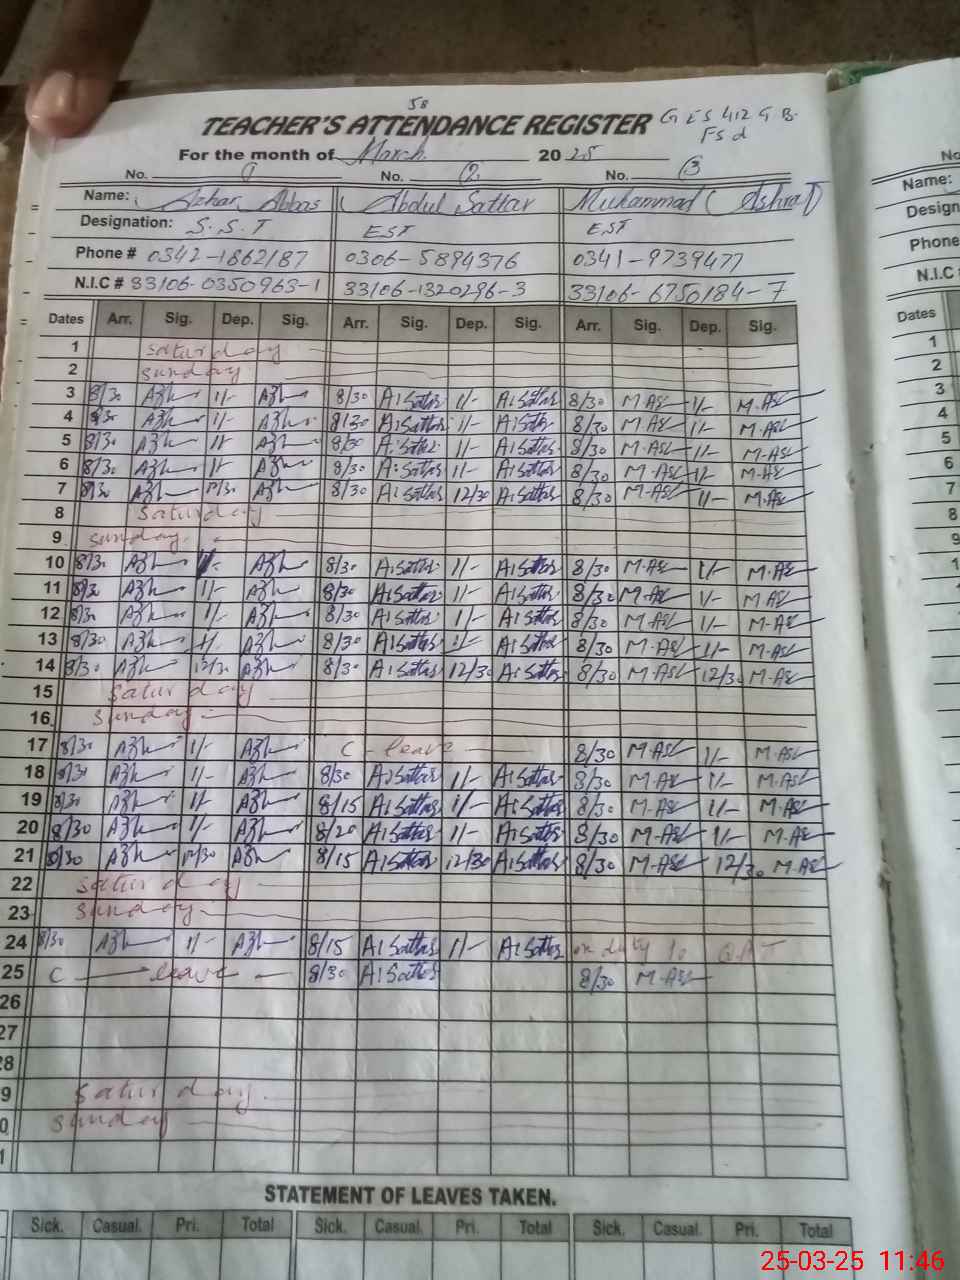 58
TEACHER'S ATTENDANCE REGISTER GES 412 G.B. Fsd
For the month of March 2025
No. 1 No. 2 No. 3
Name: Azhar Abbas Abdul Sattar Muhammad Ashraf
Designation: S.S.T EST EST
Phone # 0342-1862187 0306-5894376 0341-9739477
N.I.C # 33106-0350963-1 33106-1320296-3 33106-6750184-7
Dates Arr. Sig. Dep. Sig. Arr. Sig. Dep. Sig. Arr. Sig. Dep. Sig.
1 saturday
2 sunday
3 8/30 Azh 1/- Azh 8/30 A.Sattar 1/- A.Sattar 8/30 M.Asl 1/- M.Asl
4 8/30 Azh 1/- Azh 8/30 A.Sattar 1/- A.Sattar 8/30 M.Asl 1/- M.Asl
5 8/30 Azh 1/- Azh 8/30 A.Sattar 1/- A.Sattar 8/30 M.Asl 1/- M.Asl
6 8/30 Azh 1/- Azh 8/30 A.Sattar 1/- A.Sattar 8/30 M.Asl 1/- M.Asl
7 8/30 Azh 12/30 Azh 8/30 A.Sattar 12/30 A.Sattar 8/30 M.Asl 1/- M.Asl
8 saturday
9 sunday
10 8/30 Azh 1/- Azh 8/30 A.Sattar 1/- A.Sattar 8/30 M.Asl 1/- M.Asl
11 8/30 Azh 1/- Azh 8/30 A.Sattar 1/- A.Sattar 8/30 M.Asl 1/- M.Asl
12 8/30 Azh 1/- Azh 8/30 A.Sattar 1/- A.Sattar 8/30 M.Asl 1/- M.Asl
13 8/30 Azh 1/- Azh 8/30 A.Sattar 1/- A.Sattar 8/30 M.Asl 1/- M.Asl
14 8/30 Azh 12/30 Azh 8/30 A.Sattar 12/30 A.Sattar 8/30 M.Asl 12/30 M.Asl
15 saturday
16 sunday
17 8/30 Azh 1/- Azh C - leave 8/30 M.Asl 1/- M.Asl
18 8/30 Azh 1/- Azh 8/30 A.Sattar 1/- A.Sattar 8/30 M.Asl 1/- M.Asl
19 8/30 Azh 1/- Azh 8/15 A.Sattar 1/- A.Sattar 8/30 M.Asl 1/- M.Asl
20 8/30 Azh 1/- Azh 8/20 A.Sattar 1/- A.Sattar 8/30 M.Asl 1/- M.Asl
21 8/30 Azh 12/30 Azh 8/15 A.Sattar 12/30 A.Sattar 8/30 M.Asl 12/30 M.Asl
22 saturday
23 sunday
24 8/30 Azh 1/- Azh 8/15 A.Sattar 1/- A.Sattar on duty to QAT
25 C leave 8/30 A.Sattar 8/30 M.Asl
26
27
28
9 saturday
0 sunday
1
STATEMENT OF LEAVES TAKEN.
Sick. Casual. Pri. Total Sick. Casual. Pri. Total Sick. Casual. Pri. Total
No
Name:
Design
Phone
N.I.C
Dates
1
2
3
4
5
6
7
8
9
25-03-25 11:46